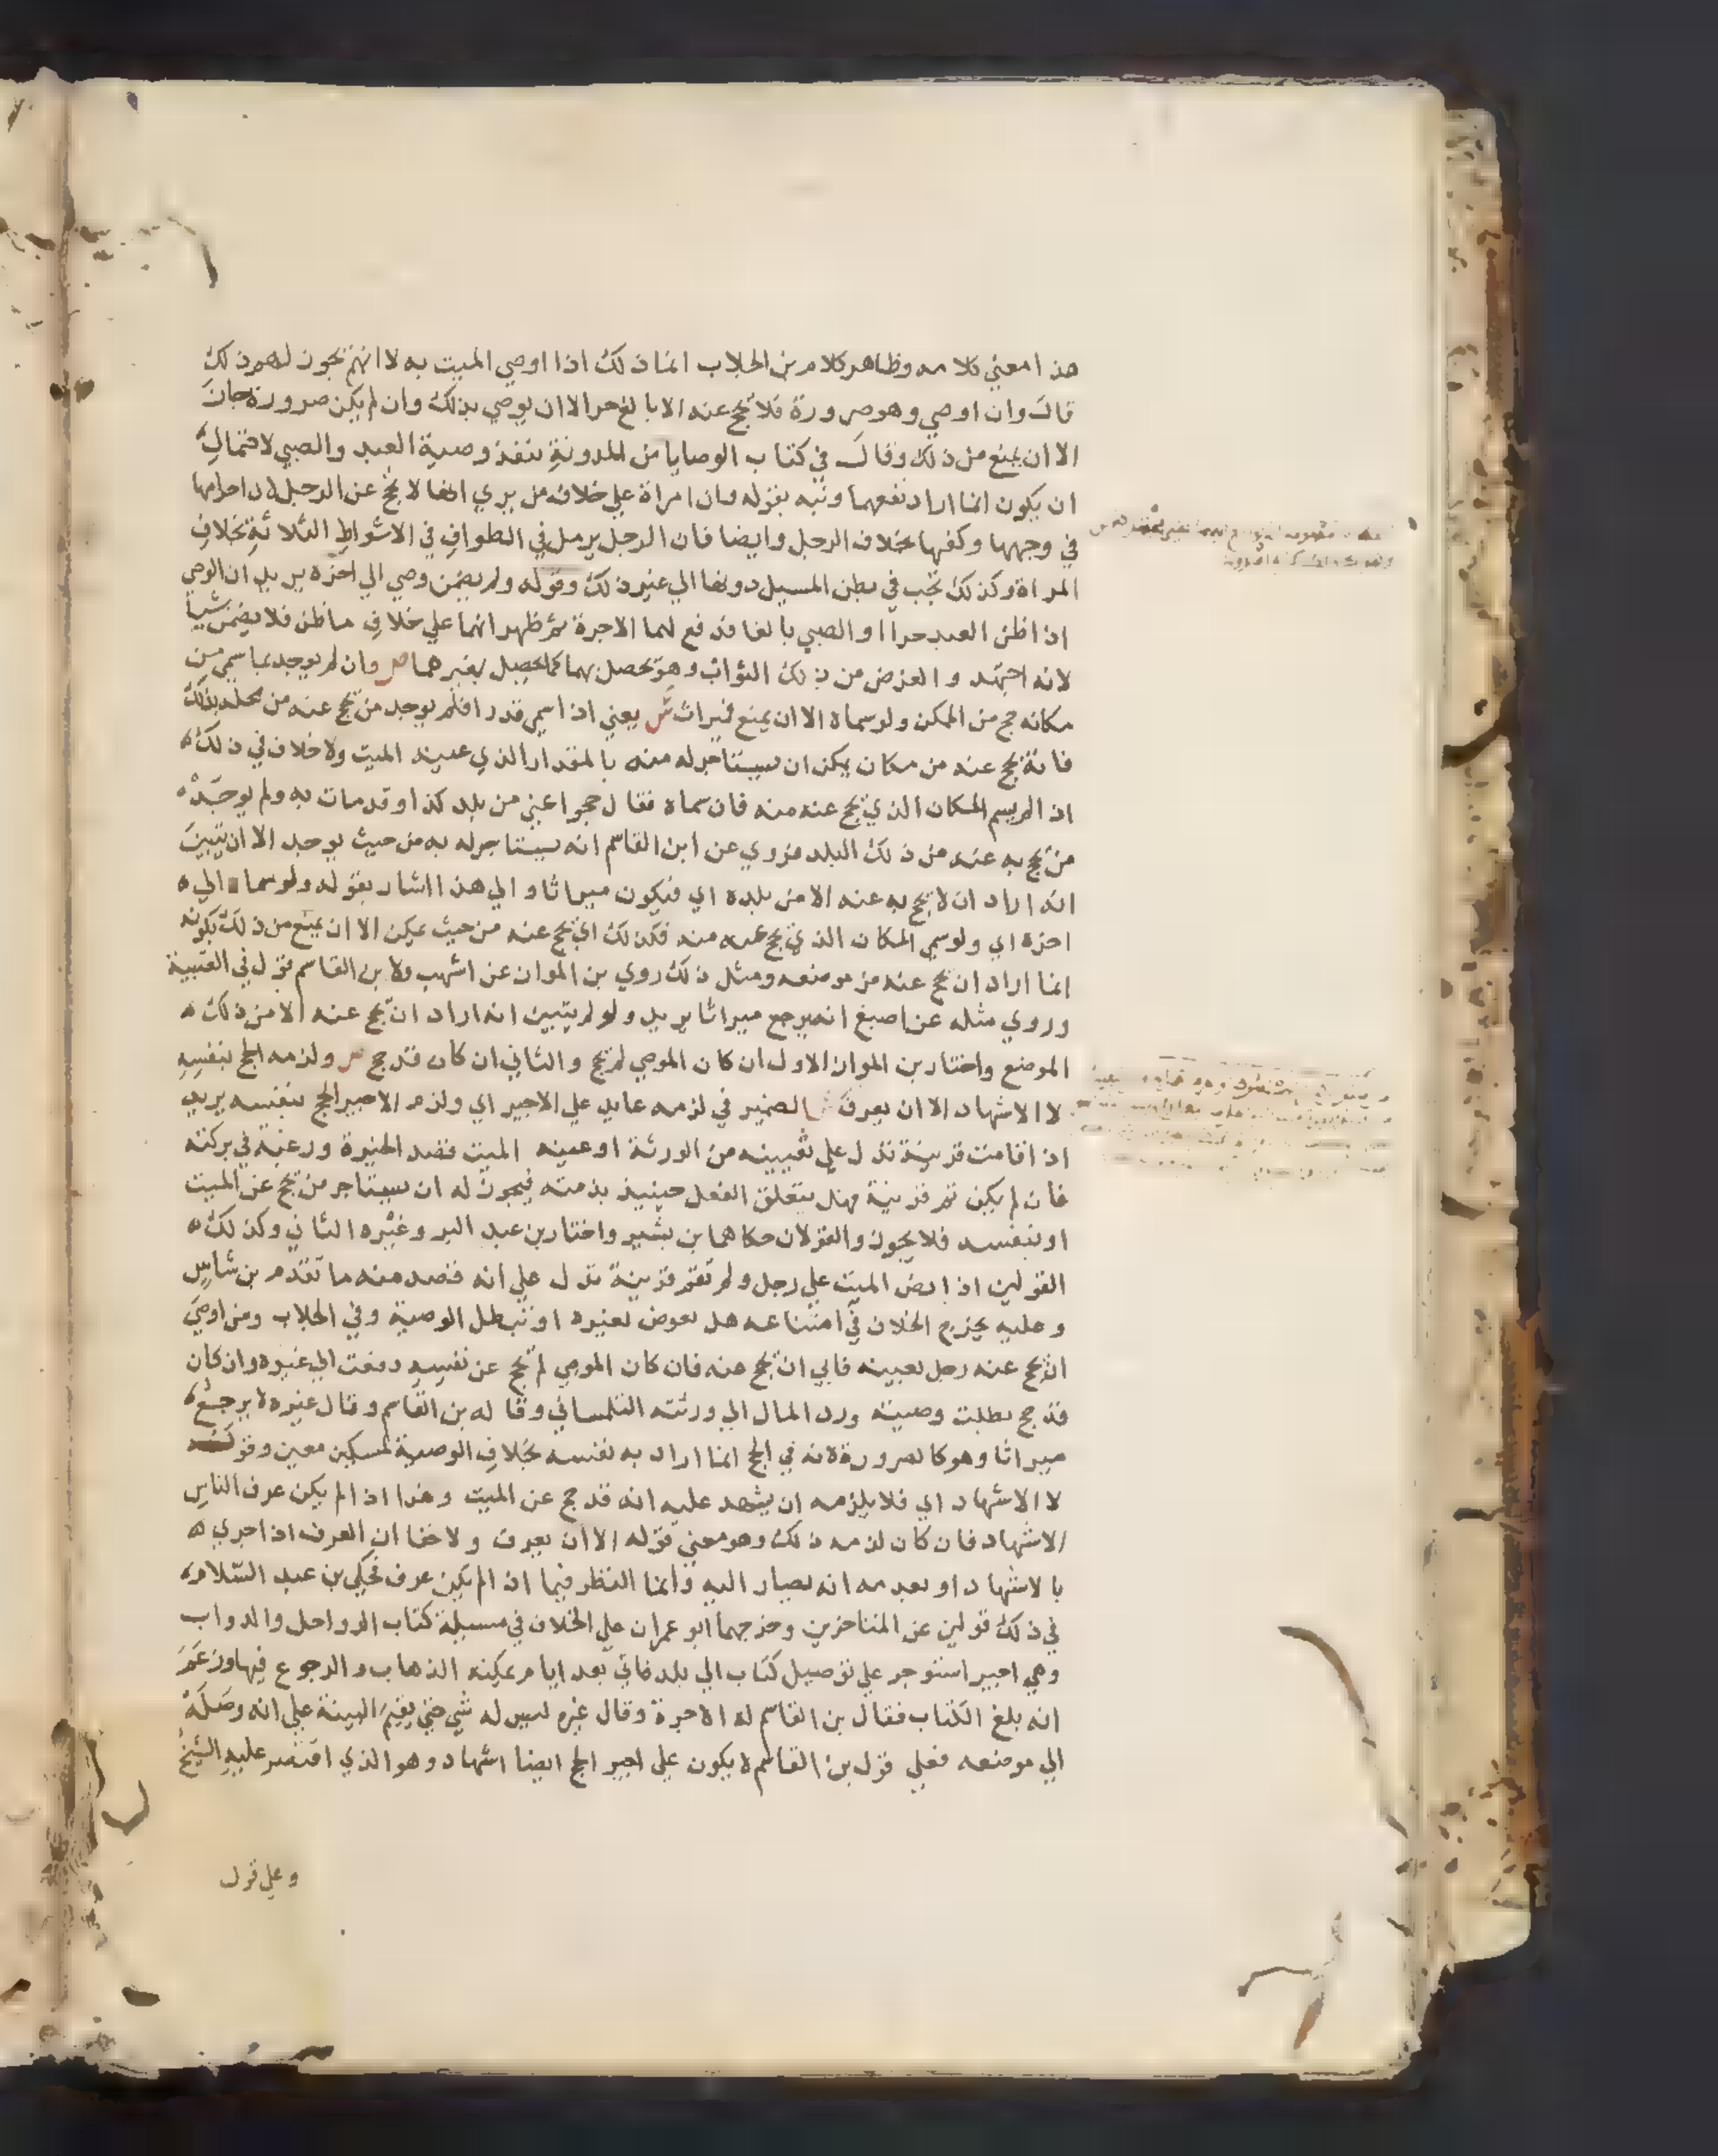 هذا معني كلامه وظاهر كلام بن الجلاب انما ذلك اذا اوصي الميت به لا انهم يجوز لهم ذلك
قال وان اوصي وهو صرورة فلا يحج عنه الا بالغ حر الا ان يوصي بذلك وان لم يكن صرورة جاز
الا ان يمنع من ذلك وقال في كتاب الوصايا من المدونة تنفذ وصية العبد والصبي لاحتمال
ان يكون انما اراد نفعهما ونبه بقوله وان امراة علي خلاف من يري انها لا تحج عن الرجل لان احرامها
في وجهها وكفيها بخلاف الرجل وايضا فان الرجل يرمل في الطواف في الاشواط الثلاثة بخلاف
المراة وكذلك يخب في بطن المسيل دونها الي غير ذلك وقوله ولم يضمن وصي الي اخره يريد ان الوصي
اذا ظن العبد حرا او الصبي بالغا فدفع لهما الاجرة ثم ظهر انهما علي خلاف ما ظن فلا يضمن شيا
لانه اجتهد والغرض من ذلك الثواب وهو يحصل بهما كما يحصل بغيرهما ص وان لم يوجد بما سمي من
مكانه حج من الممكن ولو سماه الا ان يمنع فميراث ش يعني اذا سمي قدرا فلم يوجد من يحج عنه من محله بذلك
فانه يحج عنه من مكان يمكن ان يستاجر له منه بالمقدار الذي عينه الميت ولا خلاف في ذلك ه
اذا لم يسم المكان الذي يحج عنه منه فان سماه فقال حجوا عني من بلد كذا وقد مات به ولم يوجد ه
من يحج به عنه من ذلك البلد فروي عن ابن القاسم انه يستاجر له به من حيث يوجد الا ان يتبين
انه اراد ان لا يحج به عنه الا من بلده اي فيكون ميراثا والي هذا اشار بقوله ولو سماه الي ه
اخره اي ولو سمي المكان الذي يحج عنه منه فكذلك اي يحج عنه من حيث يمكن الا ان يمنع من ذلك بكونه
انما اراد ان يحج عنه من موضعه ومثل ذلك روي بن المواز عن اشهب ولابن القاسم قول في العتبية
وروي مثله عن اصبغ انه يرجع ميراثا يريد ولو لم يتبين انه اراد ان يحج عنه الا من ذلك ه
الموضع واختار بن المواز الاول ان كان الموصي لم يحج والثاني ان كان قد حج ص ولزمه الحج بنفسه
لا الاشهاد الا ان يعرف ش الضمير في لزمه عايد علي الاجير اي ولزم الاجير الحج بنفسه يريد
اذا قامت قرينة تدل علي تعيينه من الورثة او عينه الميت قصد الخيرة ورغبة في بركته
فان لم يكن ثم قرينة فهل يتعلق الفعل حينيذ بذمته فيجوز له ان يستاجر من يحج عن الميت
او بنفسه فلا يجوز والقولان حكاهما بن بشير واختار بن عبد البر وغيره الثاني وكذلك ه
القولين اذا نص الميت علي رجل ولم تقم قرينة تدل علي انه قصد منه ما تقدم بن شاس
وعليه يخرج الخلاف في امتناعه هل يعوض بغيره او تبطل الوصية وفي الجلاب ومن اوصي
ان يحج عنه رجل بعينه فابي ان يحج عنه فان كان الموصي لم يحج عن نفسه دفعت الي غيره وان كان
قد حج بطلت وصيته ورد المال الي ورثته التلمساني وقاله بن القاسم وقال غيره لا يرجع ه
ميراثا وهو كالصرورة لانه في الحج انما اراد به نفسه بخلاف الوصية لمسكين معين وقوله
لا الاشهاد اي فلا يلزمه ان يشهد عليه انه قد حج عن الميت وهذا اذا لم يكن عرف الناس
الاشهاد فان كان لزمه ذلك وهو معني قوله الا ان يعرف ولا خفا ان العرف اذا جري ه
بالاشهاد او بعدمه انه يصار اليه وانما النظر فيما اذا لم يكن عرف فحكي بن عبد السلام ه
في ذلك قولين عن المتاخرين وخرجهما ابو عمران علي الخلاف في مسيلة كتاب الرواحل والدواب
وهي اجير استوجر علي توصيل كتاب الي بلد فاتي بعد ايام يمكنه الذهاب والرجوع فيها وزعم
انه بلغ الكتاب فقال بن القاسم له الاجرة وقال غيره ليس له شي حتي يقيم البينة علي انه وصله
الي موضعه فعلي قول بن القاسم لا يكون علي اجير الحج ايضا اشهاد وهو الذي اقتصر عليه الشيخ
وعلي قول